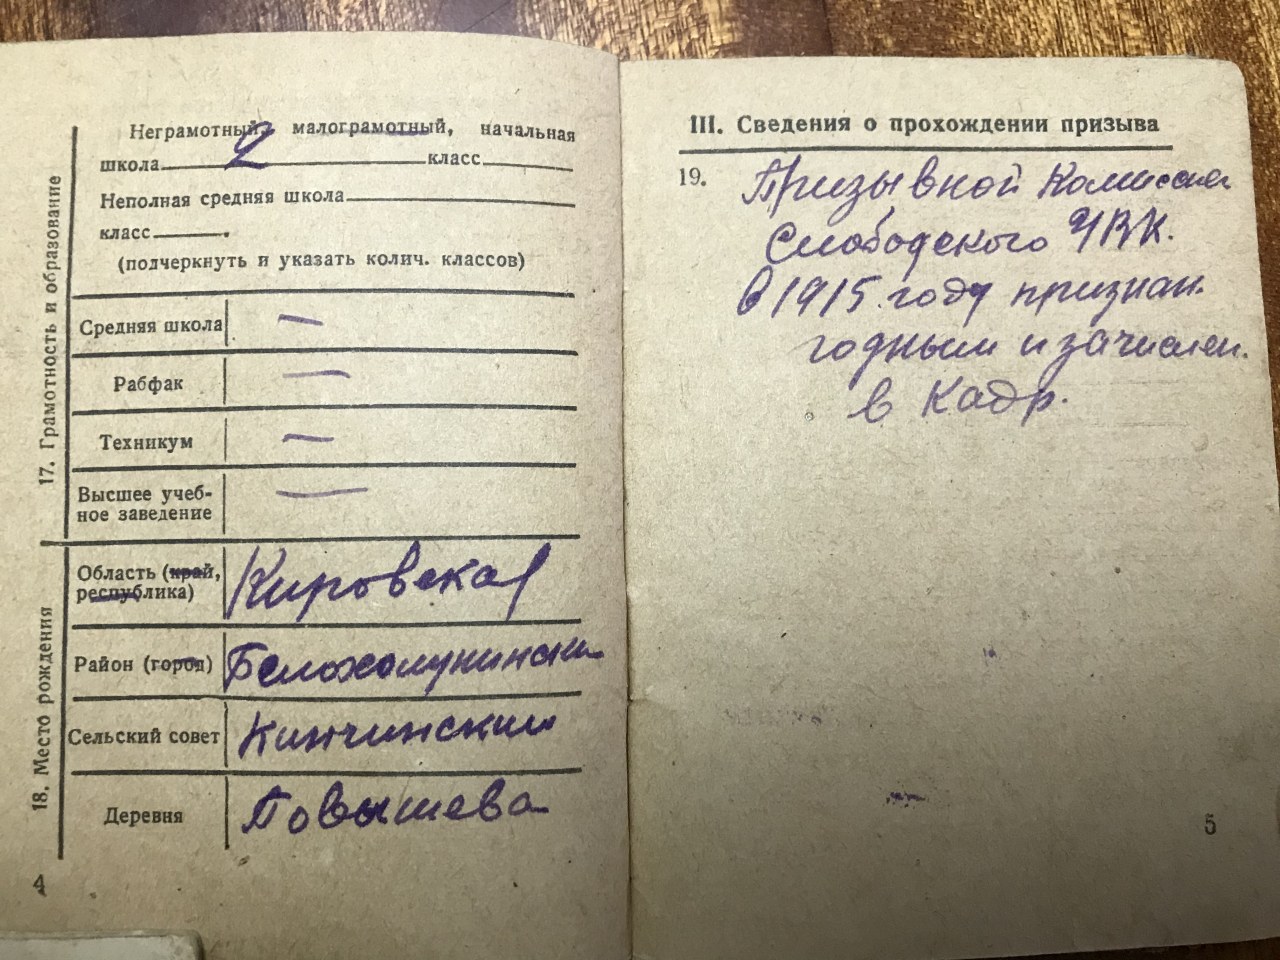 17. Грамотность и образование
Неграмотный, малограмотный, начальная
школа 2 класс
Неполная средняя школа
класс .
(подчеркнуть и указать колич. классов)
Средняя школа —
Рабфак —
Техникум —
Высшее учеб-
ное заведение —
18. Место рождения
Область (край, Кировская
республика)
Район (город) Белохолуницкий
Сельский совет Кинчинский
Деревня Повышева
4
III. Сведения о прохождении призыва
19. Призывной Комиссией
Слободского УВК.
в 1915 году признан.
годным и зачислен.
в Кадр.
5